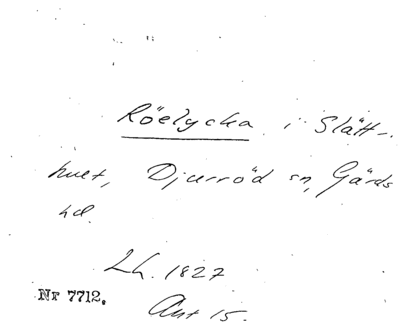 Röelycka i Slätt-
huet, Djurröd sn, Gärds
hd.
Lh. 1827
Nr 7712.
Akt 15.